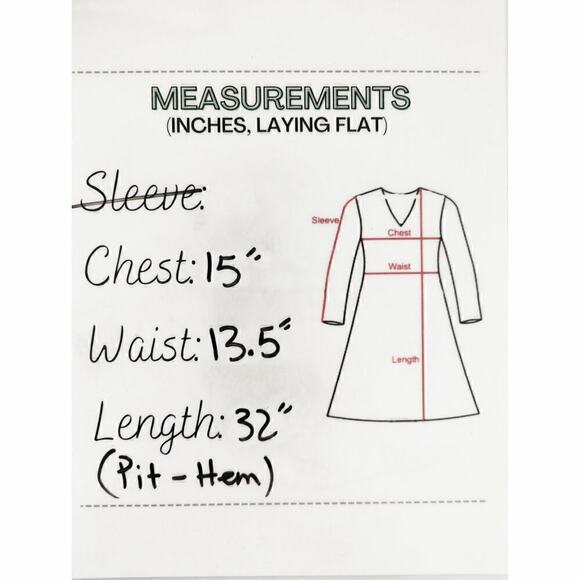 MEASUREMENTS
(INCHES, LAYING FLAT)
Sleeve:
Chest: 15"
Waist: 13.5"
Length: 32"
(Pit - Hem)
Sleeve
Chest
Waist
Length